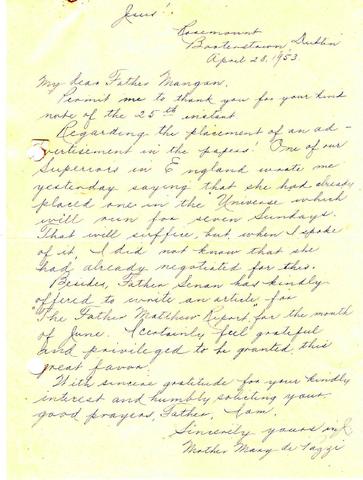 Jesus!
Rosemount
Booterstown, Dublin
April 28, 1953.
My dear Father Mangan,
Permit me to thank you for your kind
note of the 25th instant.
Regarding the placement of an ad-
vertisement in the papers! One of our
Superiors in England wrote me
yesterday saying that she had already
placed one in the Universe which
will run for seven Sundays.
That will suffice but, when I spoke
of it, I did not know that she
had already negotiated for this.
Besides, Father Senan has kindly
offered to write an article for
The Father Matthew Report for the month
of June. I certainly feel grateful
and privileged to be granted this
great favor.
With sincere gratitude for your kindly
interest and humbly soliciting your
good prayers, Father, I am.
Sincerely yours in
Mother Mary de Pazzi